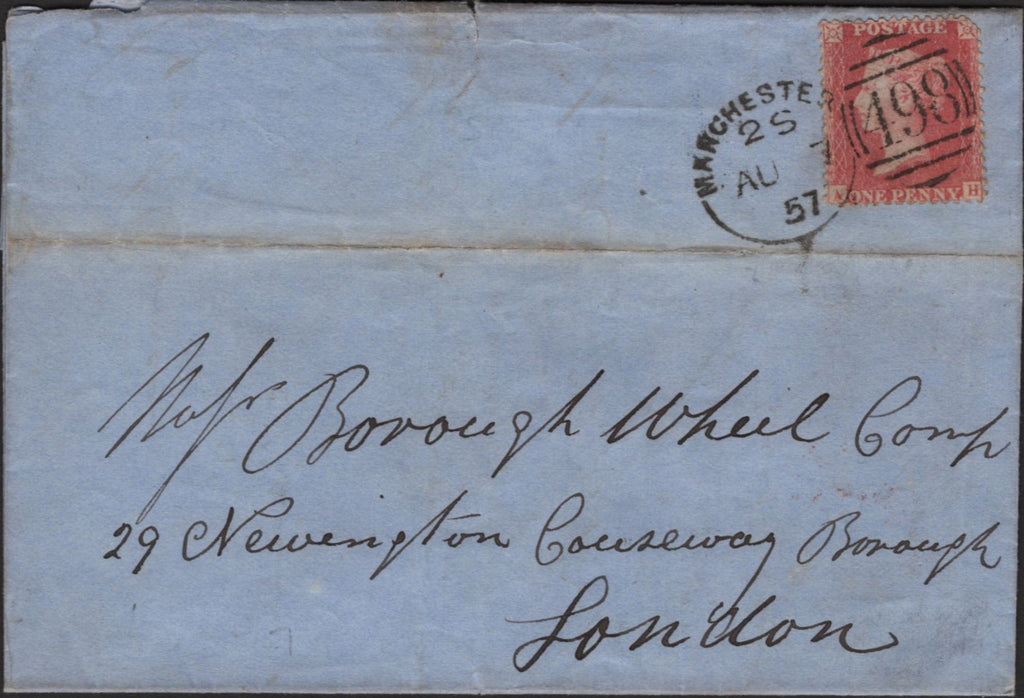 POSTAGE
498
ONE PENNY H
MANCHESTER
2S
AU
57
Messrs Borough Wheel Comp
29 Newington Causeway Borough
London